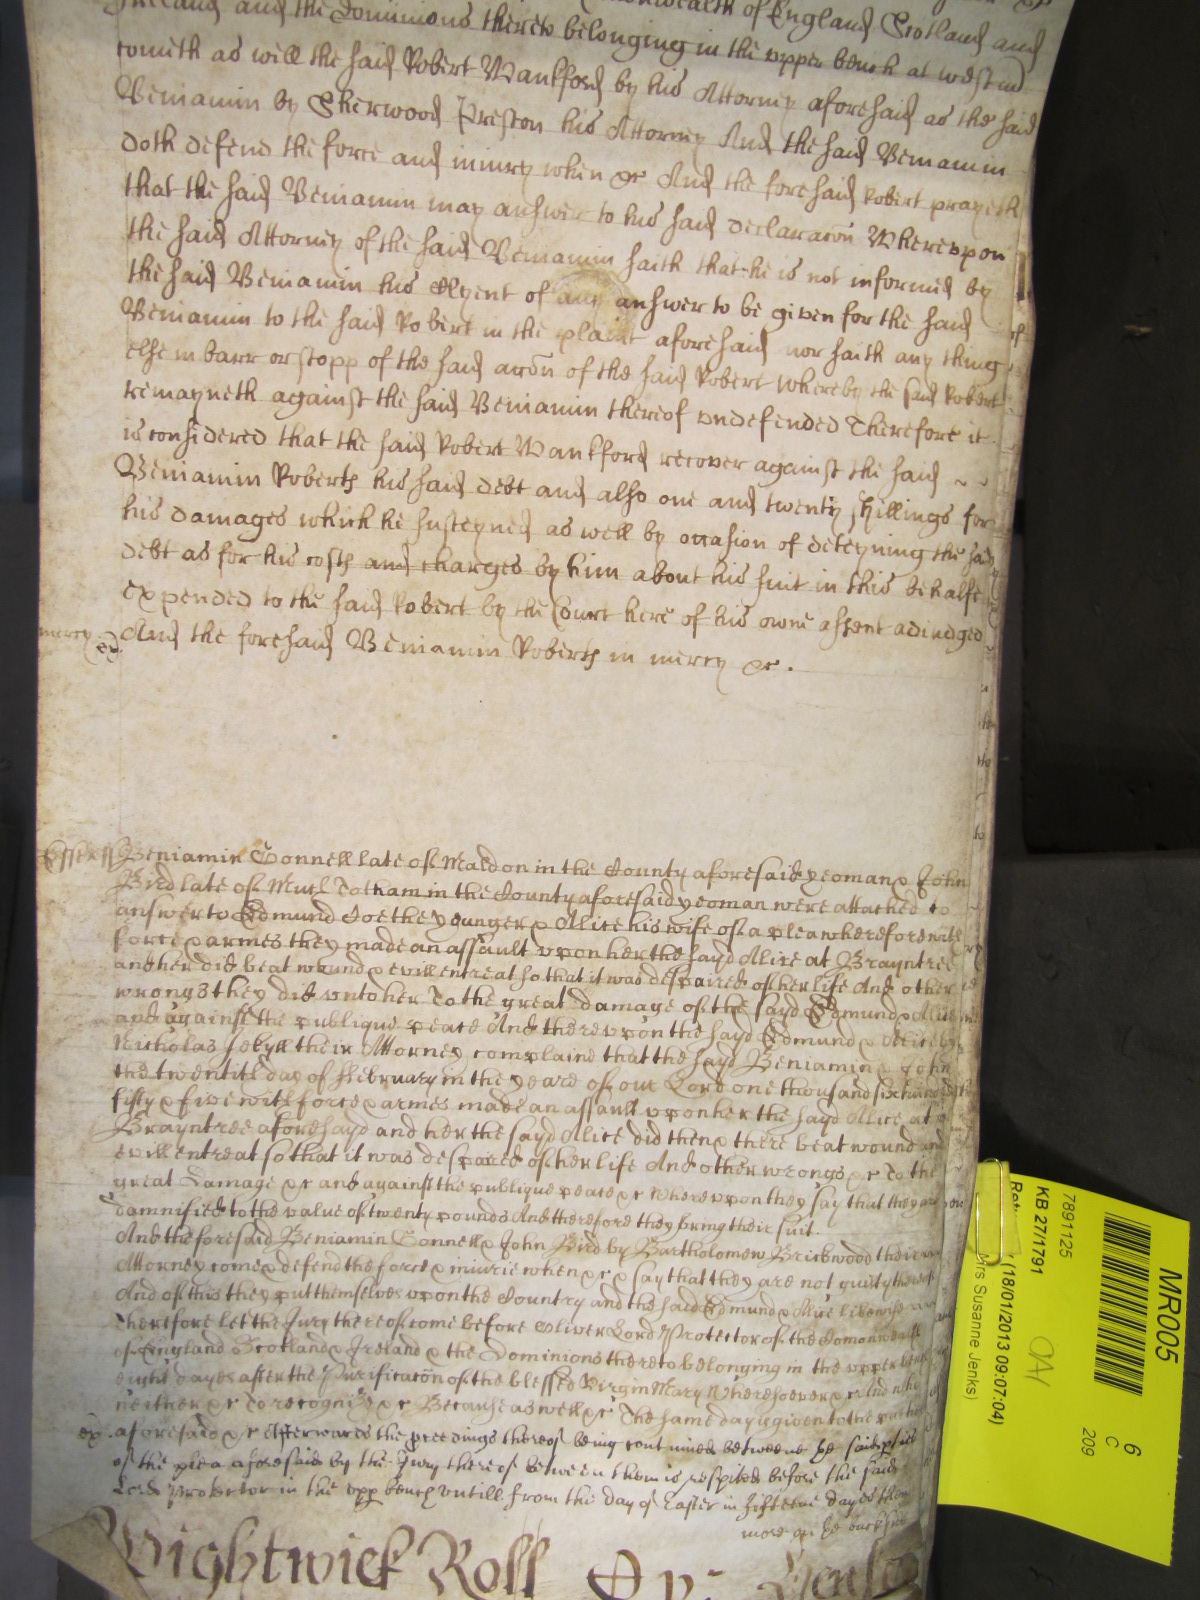 Ireland and the Dominions thereto belonging in the upper bench at Westmr
cometh as well the said Robert Wankford by his Attorney aforesaid as the said
Beniamin by Sherwood Preston his Attorney And the said Beniamin
doth defend the force and iniury when &c And the foresaid Robert prayeth
that the said Beniamin may answer to his said declaracon Whereupon
the said Attorney of the said Beniamin saith that he is not informed by
the said Beniamin his Clyent of any answer to be given for the said
Beniamin to the said Robert in the plaint aforesaid nor saith any thing
else in barr or stopp of the said accon of the said Robert Whereby the said Robert
remayneth against the said Beniamin thereof undefended Therefore it
is considered that the said Robert Wankford recover against the said ~ ~
Beniamin Roberts his said debt and also one and twenty shillings for
his damages which he susteyned as well by occasion of deteyning the said
debt as for his costs and charges by him about his suit in this behalfe
expended to the said Robert by the Court here of his owne assent adiudged
mercy And the foresaid Beniamin Roberts in mercy &c.
Essex ss Beniamin Connell late of Maldon in the County aforesaid yeoman & John
Bird late of Much Totham in the County aforesaid yeoman were attached to
answer to Edmund Coe the younger & Alice his wife of a plea wherefore with
force & armes they made an assault upon her the sayd Alice at Brayntree
and her did beat wound & evill entreat so that it was despaired of her life And other
wrongs they did unto her To the great damage of the sayd Edmund & Alice
and against the publique peace And thereupon the sayd Edmund & Alice by
Nicholas Jekyll their Attorney complaine that the sayd Beniamin & John
the twentith day of February in the yeare of our Lord one thousand six hundred
fifty & five with force & armes made an assault upon her the sayd Alice at
Brayntree aforesayd and her the sayd Alice did then & there beat wound and
evill entreat so that it was despaired of her life And other wrongs &c To the
great damage &c and against the publique peace &c Whereupon they say that they are
damnified to the value of twenty pounds And therefore they bring their suit.
And the foresaid Beniamin Connell & John Bird by Bartholomew Brickwood their
Attorney come & defend the force & iniurie when &c & say that they are not guilty thereof
And of this they put themselves upon the Country and the said Edmund & Alice likewise
Therefore let the Jury thereof come before Oliver Lord Protector of the Comonwealth
of England Scotland & Ireland & the Dominions thereto belonging in the upper bench
eight dayes after the Purificacon of the blessed Virgin Mary Wheresoever &c And who
neither &c To recognize &c Because as well &c The same day is given to the parties
ex. aforesaid &c Afterwards the proceedings thereof being continued betweene the said parties
of the plea aforesaid by the Jury thereof between them is respited before the said
Lord Protector in the upp bench untill from the day of Easter in fifteene dayes then
more on the backside
Wightwick Roll
MR005
6
C
209
7891125
KB 27/1791
(18/01/2013 09:07:04)
Mrs Susanne Jenks)